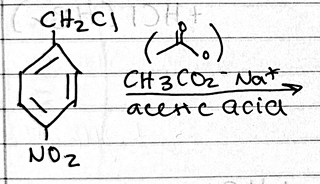 CH2Cl
O
O
CH3CO2- Na+
acetic acid
NO2